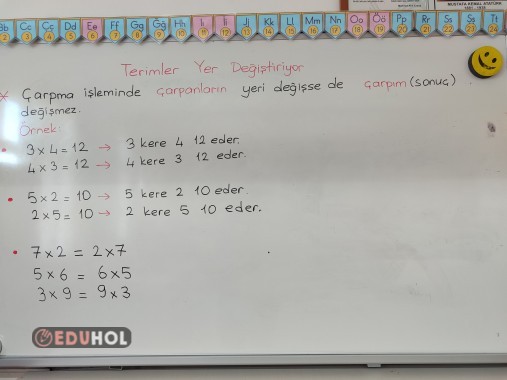 Bb Cc Çç Dd Ee Ff Gg Ğğ Hh Iı İi Jj Kk Ll Mm Nn Oo Öö Pp Rr Ss Şş Tt
2 3 4 5 6 7 8 9 10 11 12 13 14 15 16 17 18 19 20 21 22 23 24
MUSTAFA KEMAL ATATÜRK
Terimler Yer Değiştiriyor
x Çarpma işleminde çarpanların yeri değişse de çarpım (sonuç)
değişmez.
Örnek:
• 3 x 4 = 12 → 3 kere 4 12 eder.
4 x 3 = 12 → 4 kere 3 12 eder.
• 5 x 2 = 10 → 5 kere 2 10 eder.
2 x 5 = 10 → 2 kere 5 10 eder.
• 7 x 2 = 2 x 7
5 x 6 = 6 x 5
3 x 9 = 9 x 3
EDUHOL